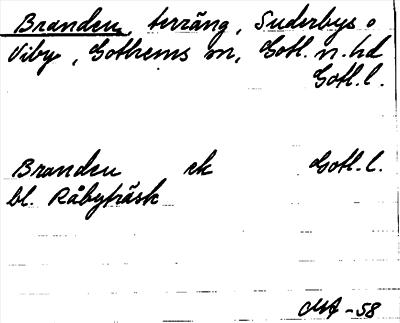 Branden, terräng, Suderbys o
Viby, Gothems sn, Gotl. n. hd
Gotl. l.
Branden ek Gotl. l.
bl. Råbyträsk
-58